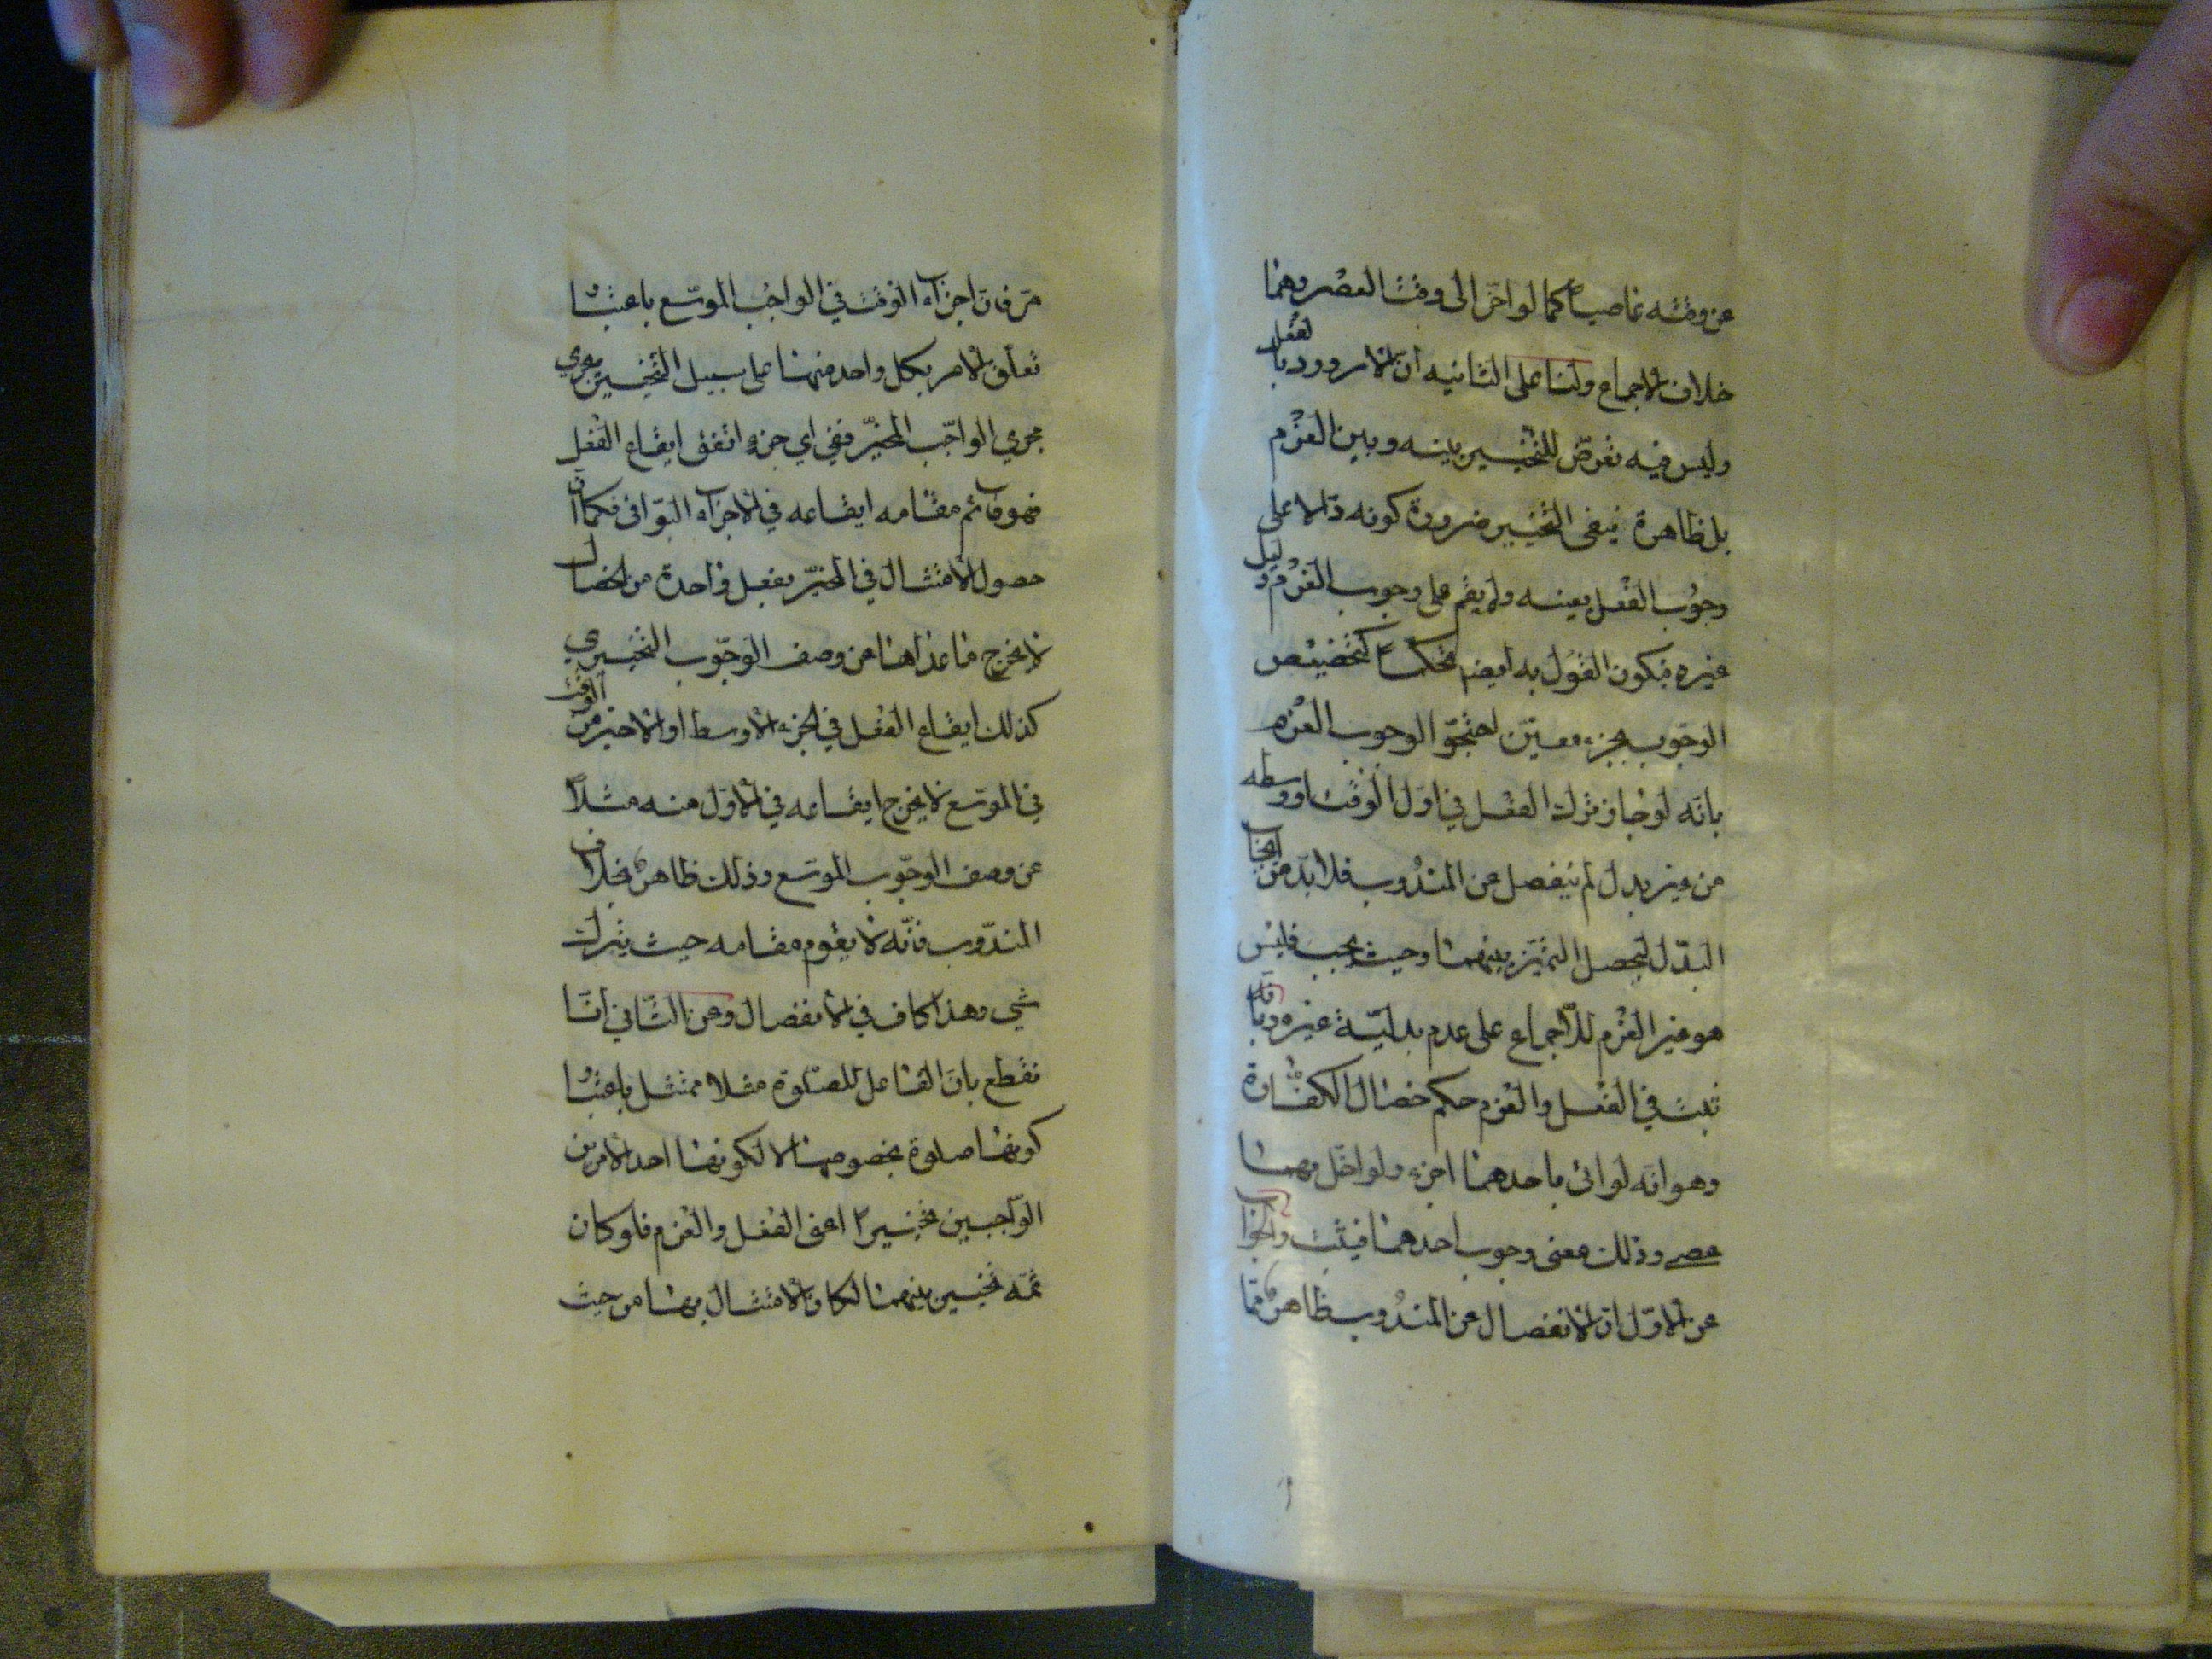 عن وقته عاصيا كما لو اخر الى وقت العصر وهما
خلاف الاجماع ولنا على الثانيه ان الامر ورد بالفعل
وليس فيه تعرض للتخيير بينه وبين العزم
بل ظاهرة ينفى التخيير ضرورة كونه دالا على
وجوب الفعل بعينه ولم يقم على وجوب العزم دليل
غيره فيكون القول به ايضا تحكما كتخصيص
الوجوب بجزء معين احتجوا لوجوب العزم
بانه لو جاز ترك الفعل في اول الوقت او وسطه
من غير بدل لم ينفصل عن المندوب فلا بد من ايجاب
البدل ليحصل التميز بينهما وحيث يجب فليس
هو غير العزم للاجماع على عدم بدلية غيره وبانه
ثبت في الفعل والعزم حكم خصال الكفارة
وهو انه لو اتى باحدهما اجزء ولو اخل بهما
عصى وذلك معنى وجوب احدهما فيثبت والجواب
عن الاول ان الانفصال عن المندوب ظاهر مما
مر فان اجزاء الوقت في الواجب الموسع باعتبار
تعلق الامر بكل واحد منها على سبيل التخيير يجري
مجري الواجب المخير ففي اي جزء اتفق ايقاع الفعل
فهو قائم مقامه ايقاعه في الاجزاء البواقى فكما ان
حصول الامتثال في المخير بفعل واحدة من الخصال
لا يخرج ما عداها عن وصف الوجوب التخييري
كذلك ايقاع الفعل في الجزء الاوسط او الاخير من الوقت
في الموسع لا يخرج ايقاعه في الاول منه مثلا
عن وصف الوجوب الموسع وذلك ظاهر بخلاف
المندوب فانه لا يقوم مقامه حيث يترك
شي وهذا كاف في الانفصال وعن الثاني انا
نقطع بان الفاعل للصلوة مثلا ممتثل باعتبار
كونها صلوة بخصوصها لا لكونها احد الامرين
الواجبين تخييرا اعنى الفعل والعزم فلو كان
ثمه تخيير بينهما لكان الامتثال بها من حيث